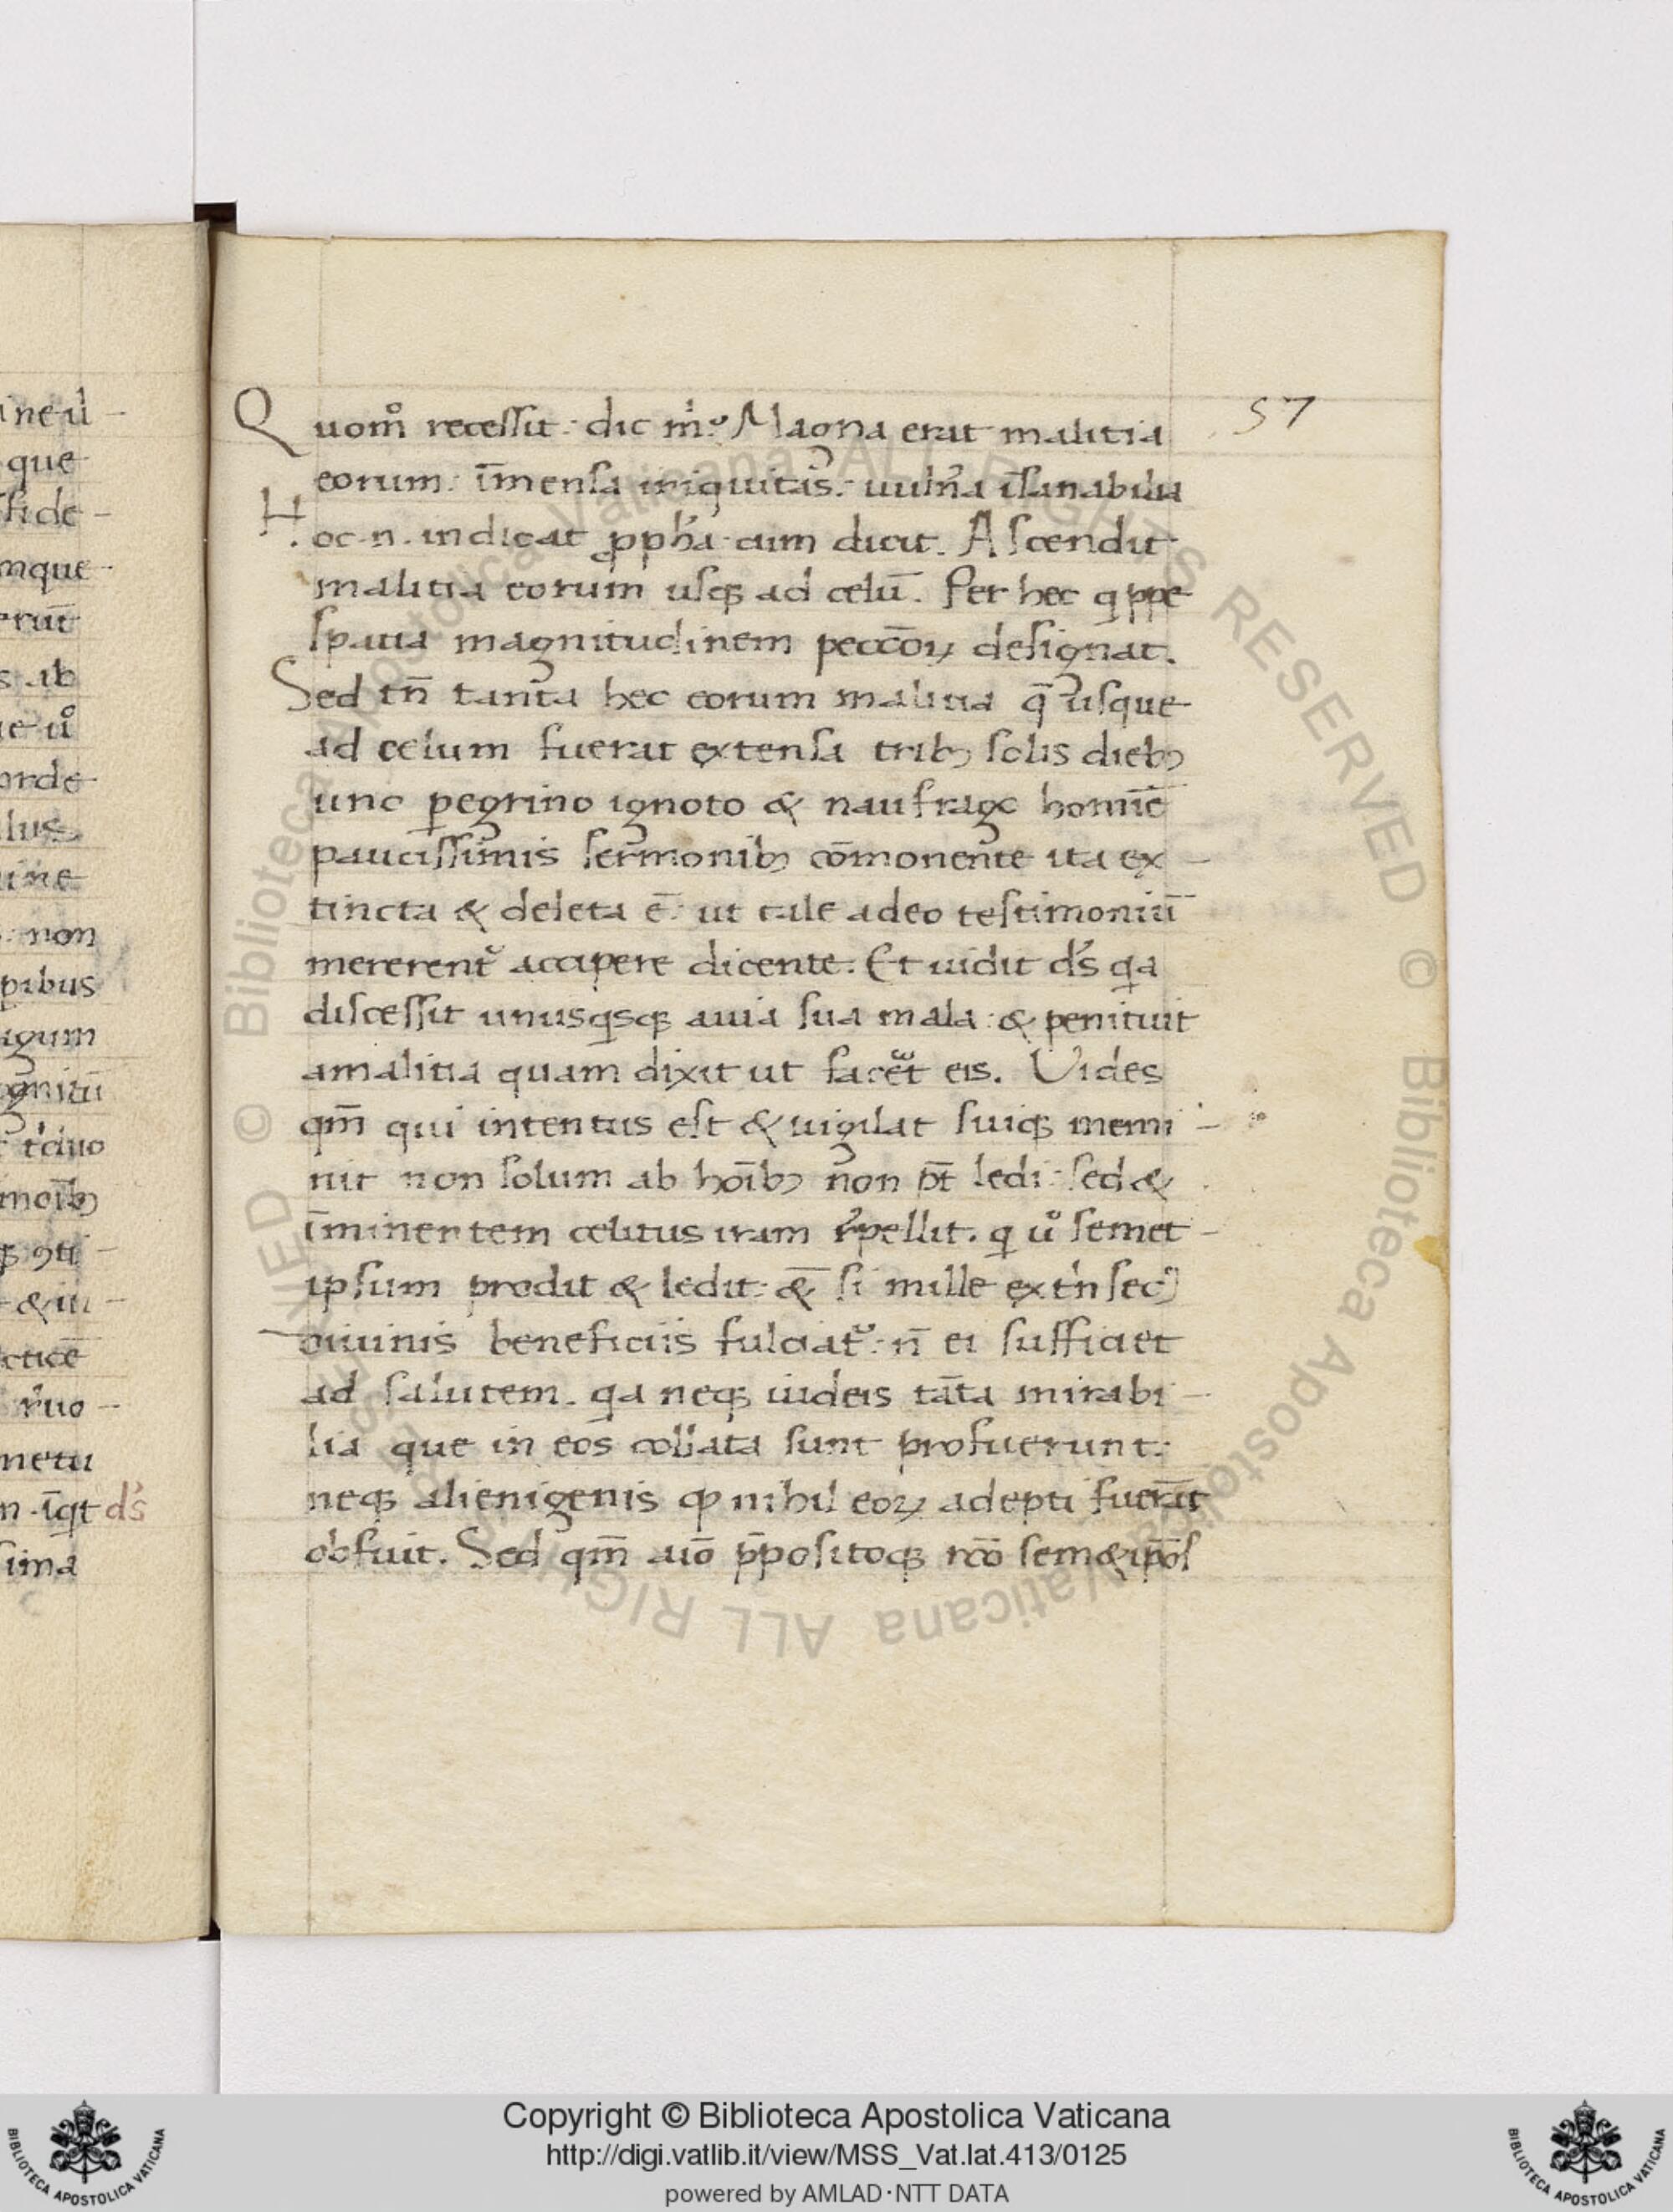 ine u̓ -
que
fide -
mque
erūt
s ab
ue u̓
orde
llus
uine
non
pibus
igum
ognitū
t̓ciuo
moib᷒
ꝯti -
& in -
ctice̅
r̓uo -
metu
n. īqt ds̓
sima
57
Quom̊ recessit: dic m̓. Magna erat malitia
eorum: īmensa iniquitas: uuln̓a īsanabilia
Hoc .n. indicat ꝓph̓a cum dicit. Ascendit
malitia eorum usqꝫ ad celū. Per hec qppe
spatia magnitudinem peccōꝝ designat.
Sed tn̄ tanta hec eorum malitia q̄ usque
ad celum fuerat extensa trib᷒ solis dieb᷒
uno ꝑegrino ignoto & naufrago homīe
paucissimis sermonib᷒ cōmonente ita ex -
tincta & deleta ē: ut tale adeo testimoniū
mererent᷑ accipere dicente. Et uidit ds̓ qa
discessit unusqsqꝫ auia sua mala: & penituit
amalitia quam dixit ut facet eis. Uides
qm̄ qui intentus est & uigilat suiqꝫ memi -
nit non solum ab hōib᷒ non pt̄ ledi: sed &
īminentem celitus iram r̓pellit. q u̓ semet -
ipsum prodit & ledit: &̄ si mille ext̓nsec᷒
diuinis beneficiis fulciat᷑: n̄ ei sufficiet
ad salutem. qa neqꝫ iudeis tāta mirabi -
lia que in eos collata sunt profuerunt:
neqꝫ alienigenis ꝙ nihil eoꝝ adepti fuerāt
obfuit. Sed qm̄ aīo ꝓpositoqꝫ rc̄o sem&ipōs
© Biblioteca Apostolica Vaticana ALL RIGHTS RESERVED © Biblioteca Apostolica Vaticana ALL RIGHTS RESERVED
BIBLIOTECA APOSTOLICA VATICANA
Copyright © Biblioteca Apostolica Vaticana
http://digi.vatlib.it/view/MSS_Vat.lat.413/0125
powered by AMLAD·NTT DATA
BIBLIOTECA APOSTOLICA VATICANA